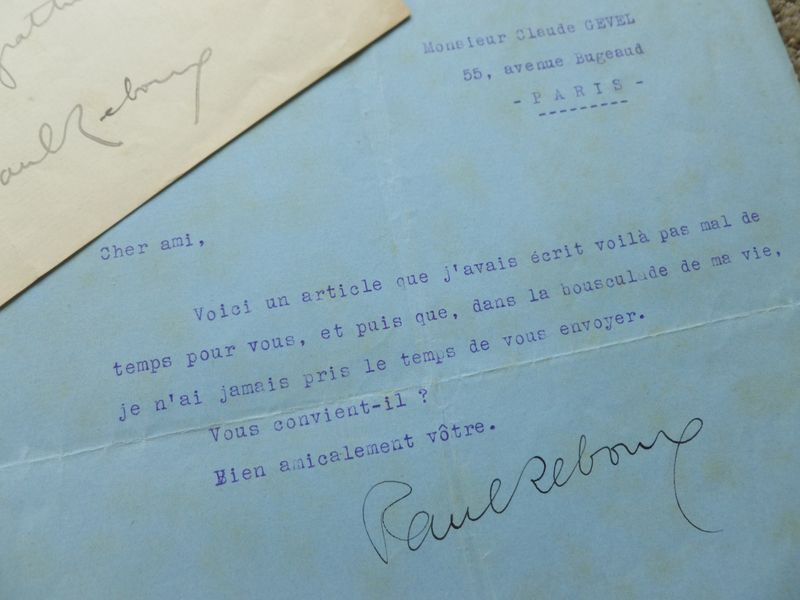 Paul Reboux
Monsieur Claude GEVEL
55, avenue Bugeaud
- P A R I S -
Cher ami,
Voici un article que j'avais écrit voilà pas mal de
temps pour vous, et puis que, dans la bousculade de ma vie,
je n'ai jamais pris le temps de vous envoyer.
Vous convient-il ?
Bien amicalement vôtre.
Paul Reboux